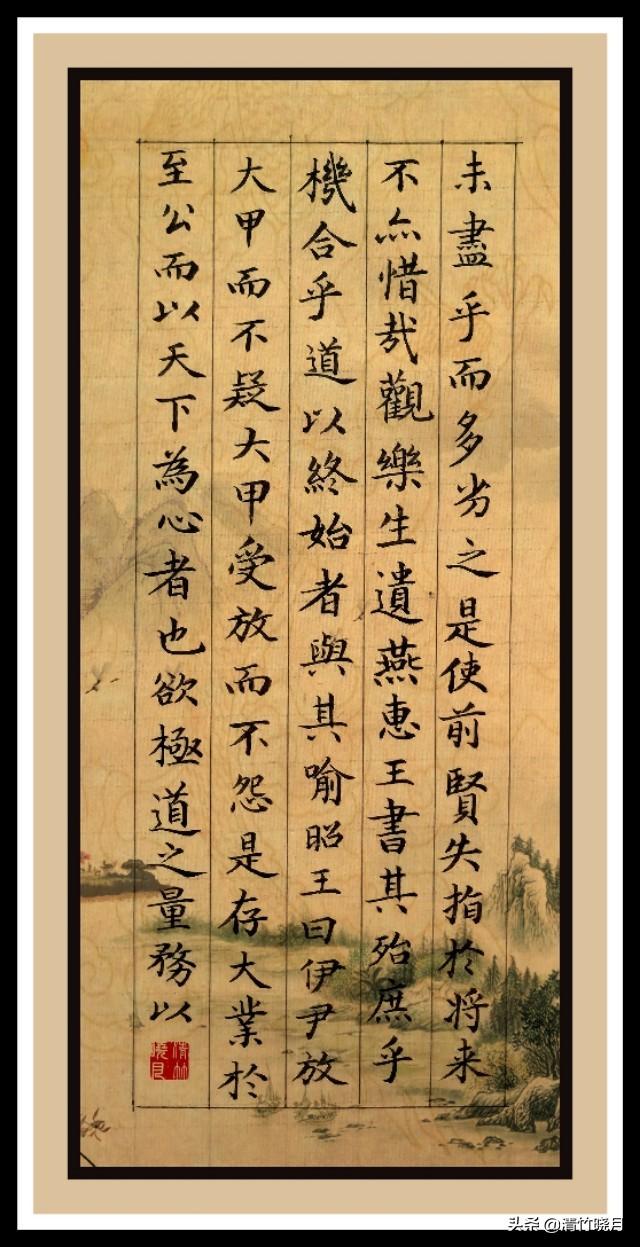 未盡乎而多劣之是使前賢失指於将来
不亦惜哉觀樂生遺燕惠王書其殆庶乎
機合乎道以終始者與其喻昭王曰伊尹放
大甲而不疑大甲受放而不怨是存大業於
至公而以天下為心者也欲極道之量務以
清竹曉月
头条 @清竹晓月